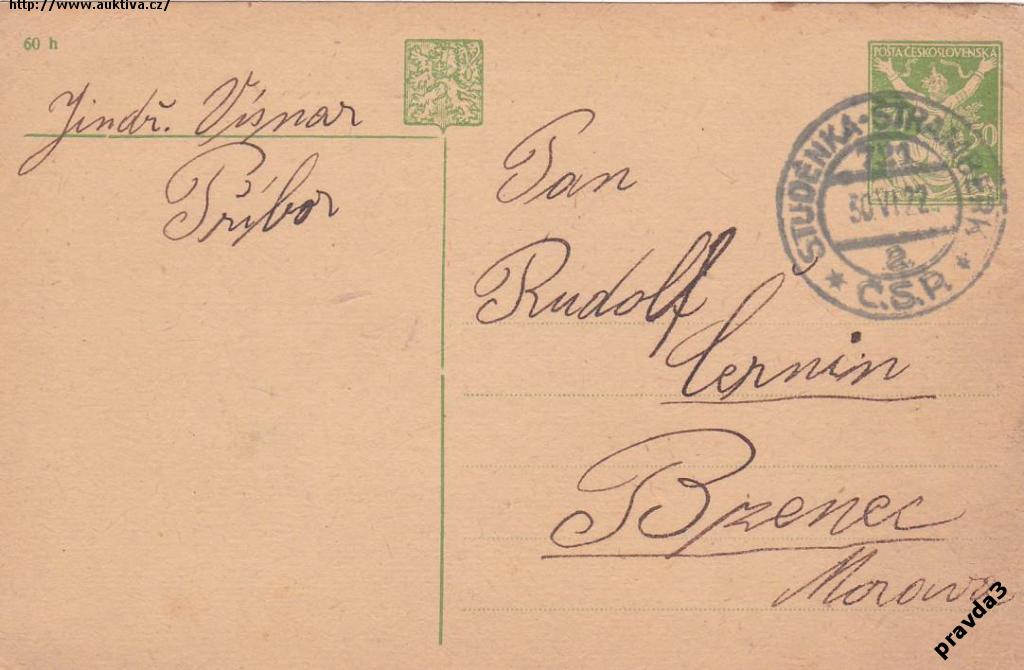 http://www.auktiva.cz/
60 h
Jindř. Vísnar
Příbor
POŠTA ČESKOSLOVENSKÁ
50
STUDÉNKA-ŠTRAMBERK
721
30.VI.22
a
Č.S.P.
Pan
Rudolf
Černin
Bzenec
Morava
pravda3